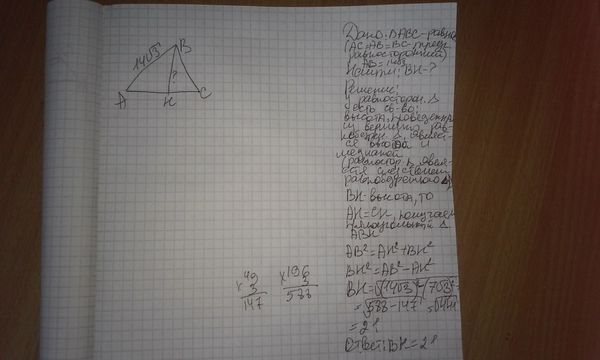 14√3
B
?
A
H
C
Дано: ΔABC-равно
(AC=AB=BC-
равносторонний)
AB=14√3
Найти: BH-?
Решение:
У равносторон. Δ
есть св-во:
высота, проведенная
из вершины
является
высотой и
медианой
(равностор. Δ явля-
ется следствием
равнобедренного Δ)
BH-высота, то
AH=CH, получаем
прямоугольный Δ
ABH
AB²=AH²+BH²
BH²=AB²-AH²
BH=√(14√3)²-(7√3)²=
=√588-147=√441
=21
Ответ: BH=21
49
×3
147
×196
3
588